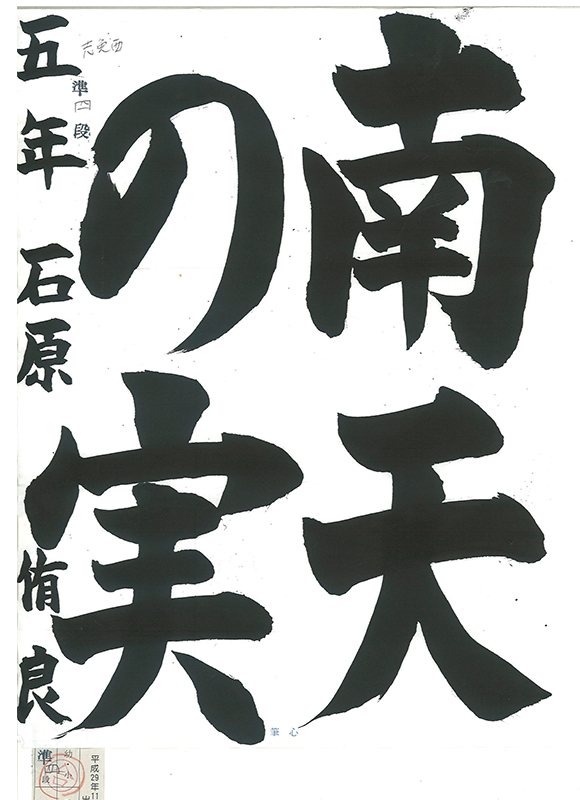 南天
の実
五年 石原 侑良
準四段
心筆
平成29年11
幼・小
準四段